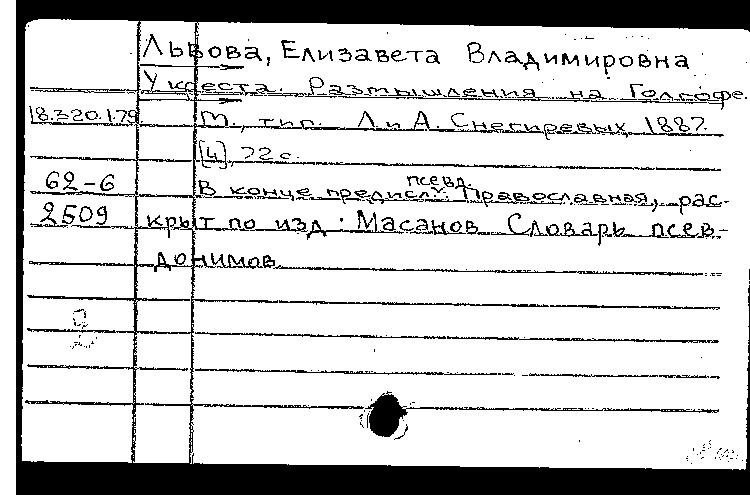 Львова, Елизавета Владимировна
У креста. Размышления на Голгофе.
18.320.1.79. М., тип. Л и А. Снегиревых, 1887.
[4], 72 с.
62-6 В конце предисл.: псевд. Православная, рас-
2509 крыт по изд.: Масанов Словарь псев-
донимов